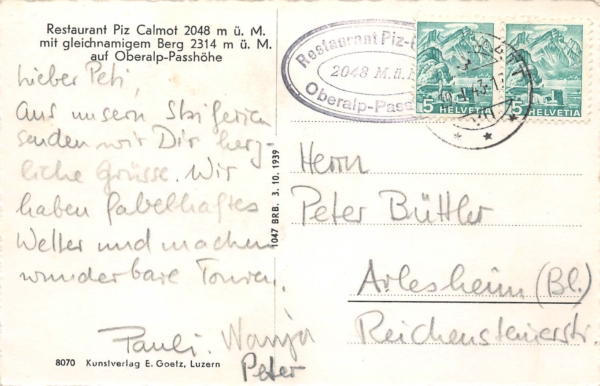 Restaurant Piz Calmot 2048 m ü. M.
mit gleichnamigem Berg 2314 m ü. M.
auf Oberalp-Passhöhe
Lieber Peti,
Aus unsern Skiferien
senden wir Dir herz-
liche Grüsse. Wir
haben fabelhaftes
Wetter und machen
wunderbare Touren.
Pauli. Wanja
Peter
8070 Kunstverlag E. Goetz, Luzern
1047 BRB. 3. 10. 1939
Restaurant Piz-
2048 M.ü.M.
Oberalp-Pass
5 HELVETIA
5 HELVETIA
Herrn
Peter Büttler
Arlesheim (Bl.)
Reichensteinerstr.